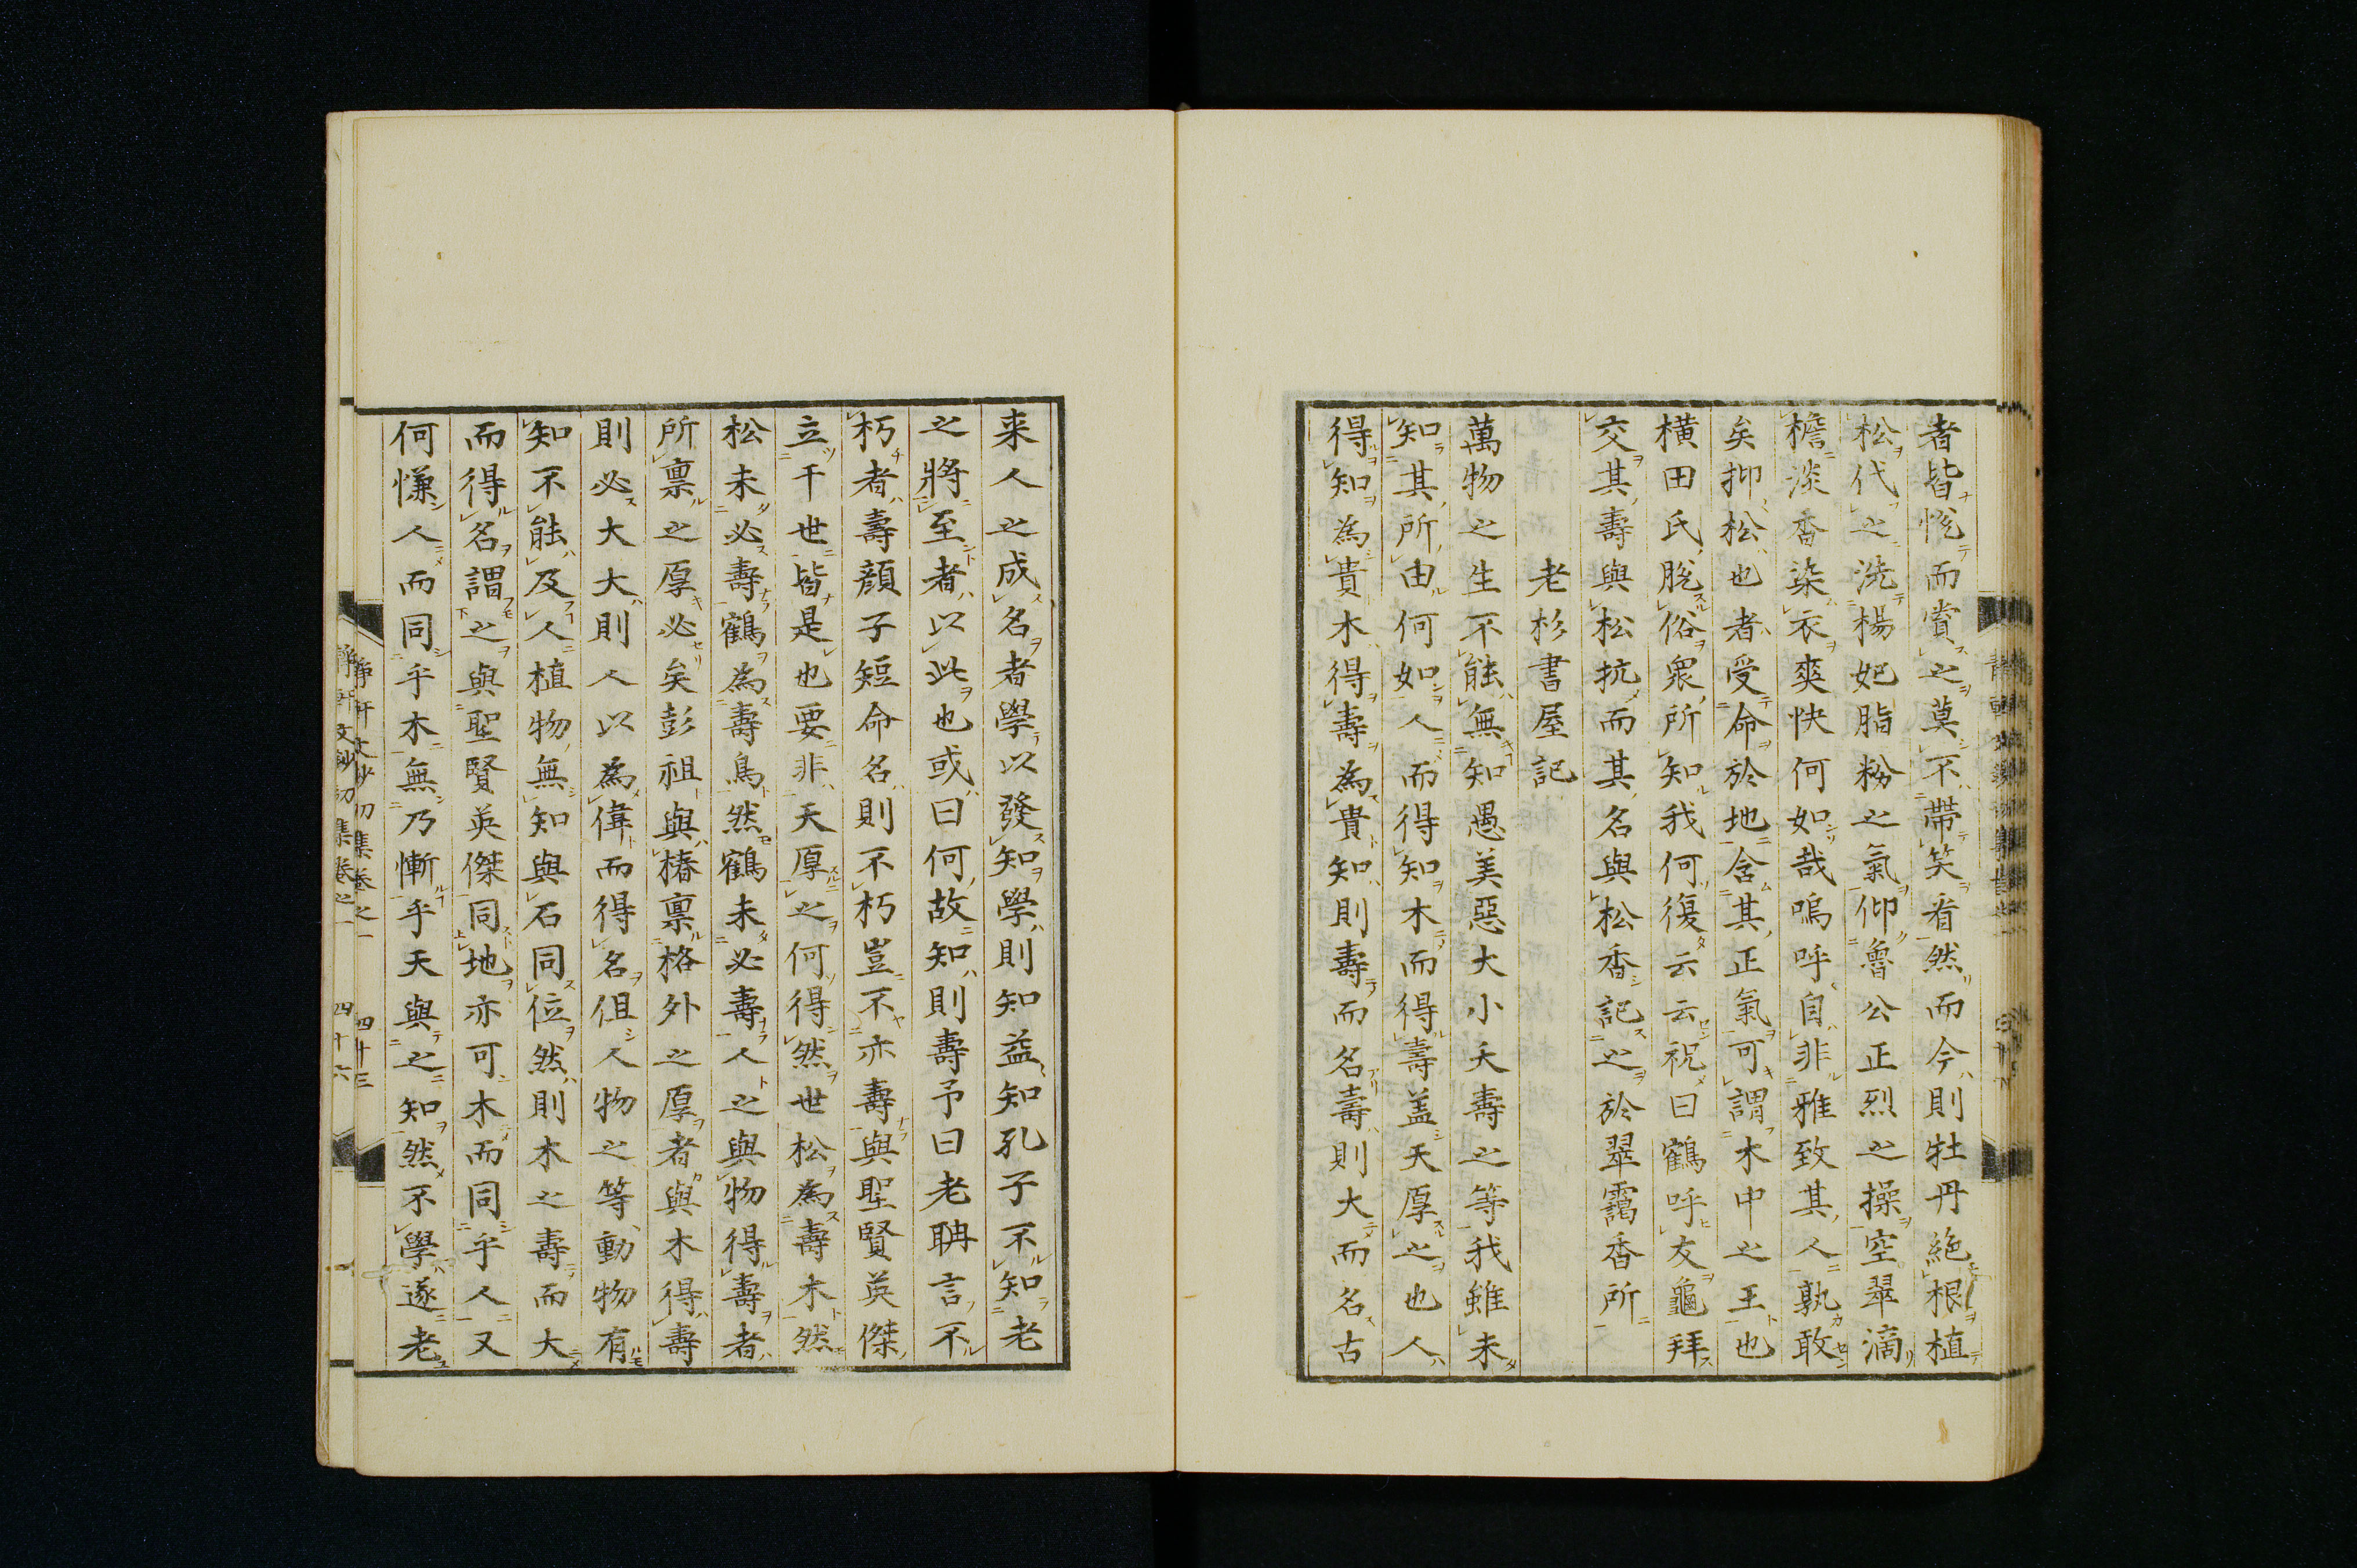 者皆悅而賞之莫不帶笑看然而今則牡丹絶根植
松代之洗楊妃脂粉之氣仰魯公正烈之操空翠滴
檐淡香染衣爽快何如哉嗚呼自非雅致其人孰敢
矣抑松也者受命於地含其正氣可謂木中之王也
横田氏脫俗衆所知我何復云云祝曰鶴呼友龜拜
交其壽與松抗而其名與松香記之於翠靄香所
老杉書屋記
萬物之生不能無知愚美惡大小夭壽之等我雖未
知其所由何如人而得知木而得壽盖天厚之也人
得知為貴木得壽為貴知則壽而名壽則大而名古
来人之成名者學以發知學則知益知孔子不知老
之將至者以此也或曰何故知則壽予曰老聃言不
朽者壽顔子短命名則不朽豈不亦壽與聖賢英傑
立千世皆是也要非天厚之何得然世松為壽木然
松未必壽鶴為壽鳥然鶴未必壽人之與物得壽者
所禀之厚必矣彭祖與椿禀格外之厚者與木得壽
則必大大則人以為偉而得名但人物之等動物有
知不能及人植物無知與石同位然則木之壽而大
而得名謂之與聖賢英傑同地亦可木而同乎人又
何慊人而同乎木無乃慚乎天與之知然不學遂老
靜軒文鈔初集卷之一
四十三
四十六